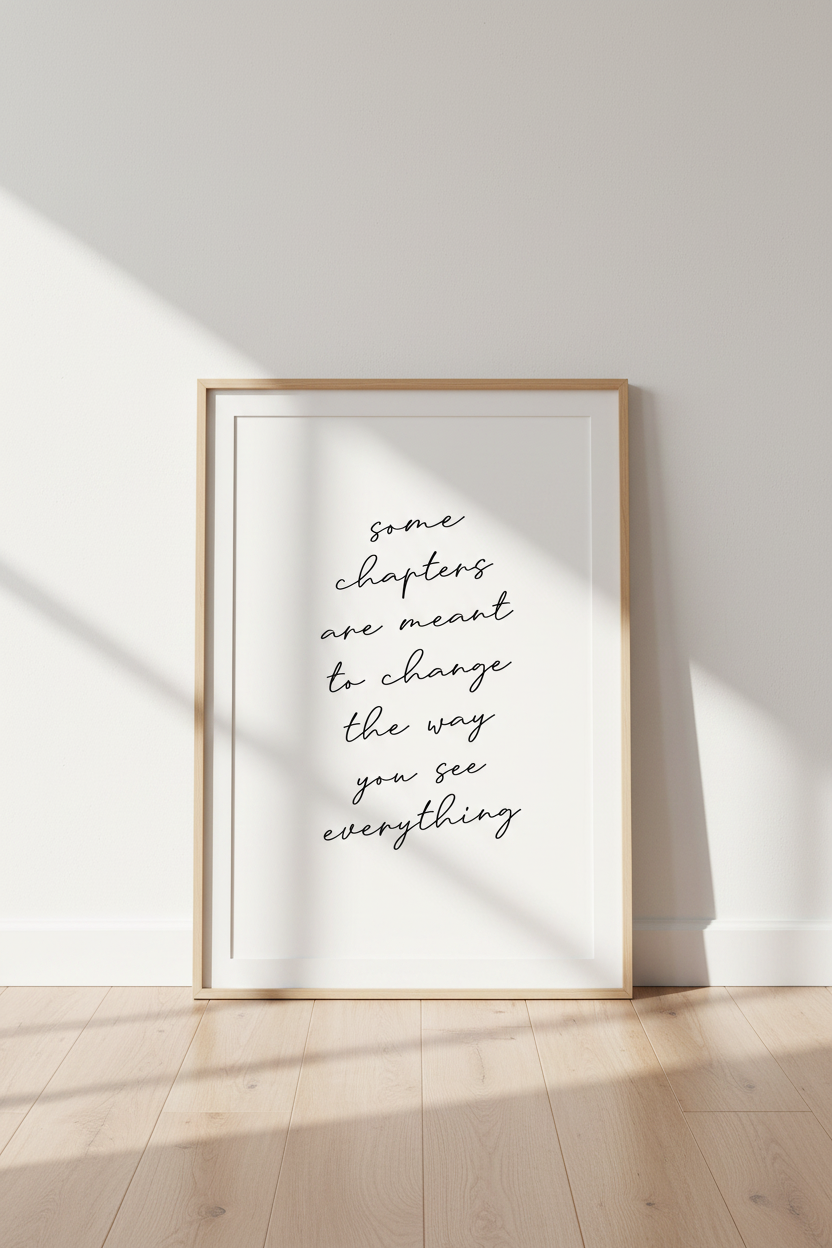 some
chapters
are meant
to change
the way
you see
everything